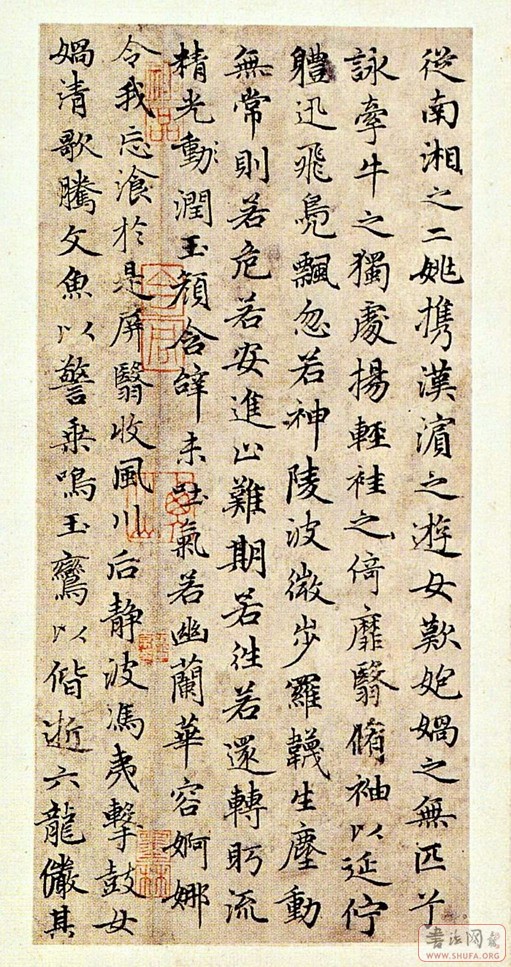 從南湘之二姚携漢濱之遊女歎媧之無匹兮
詠牽牛之獨處揚輕袿之倚靡翳脩袖以延佇
軆迅飛鳧飄忽若神陵波微步羅韈生塵動
無常則若危若安進止難期若往若還轉眄流
精光動潤玉顏含辝未吐氣若幽蘭華容婀娜
令我忘飡於是屏翳收風川后静波馮夷擊鼓女
媧清歌騰文魚以警乗鳴玉鸞以偕逝六龍儼其
神品
墨林
書法网
WWW.SHUFA.ORG